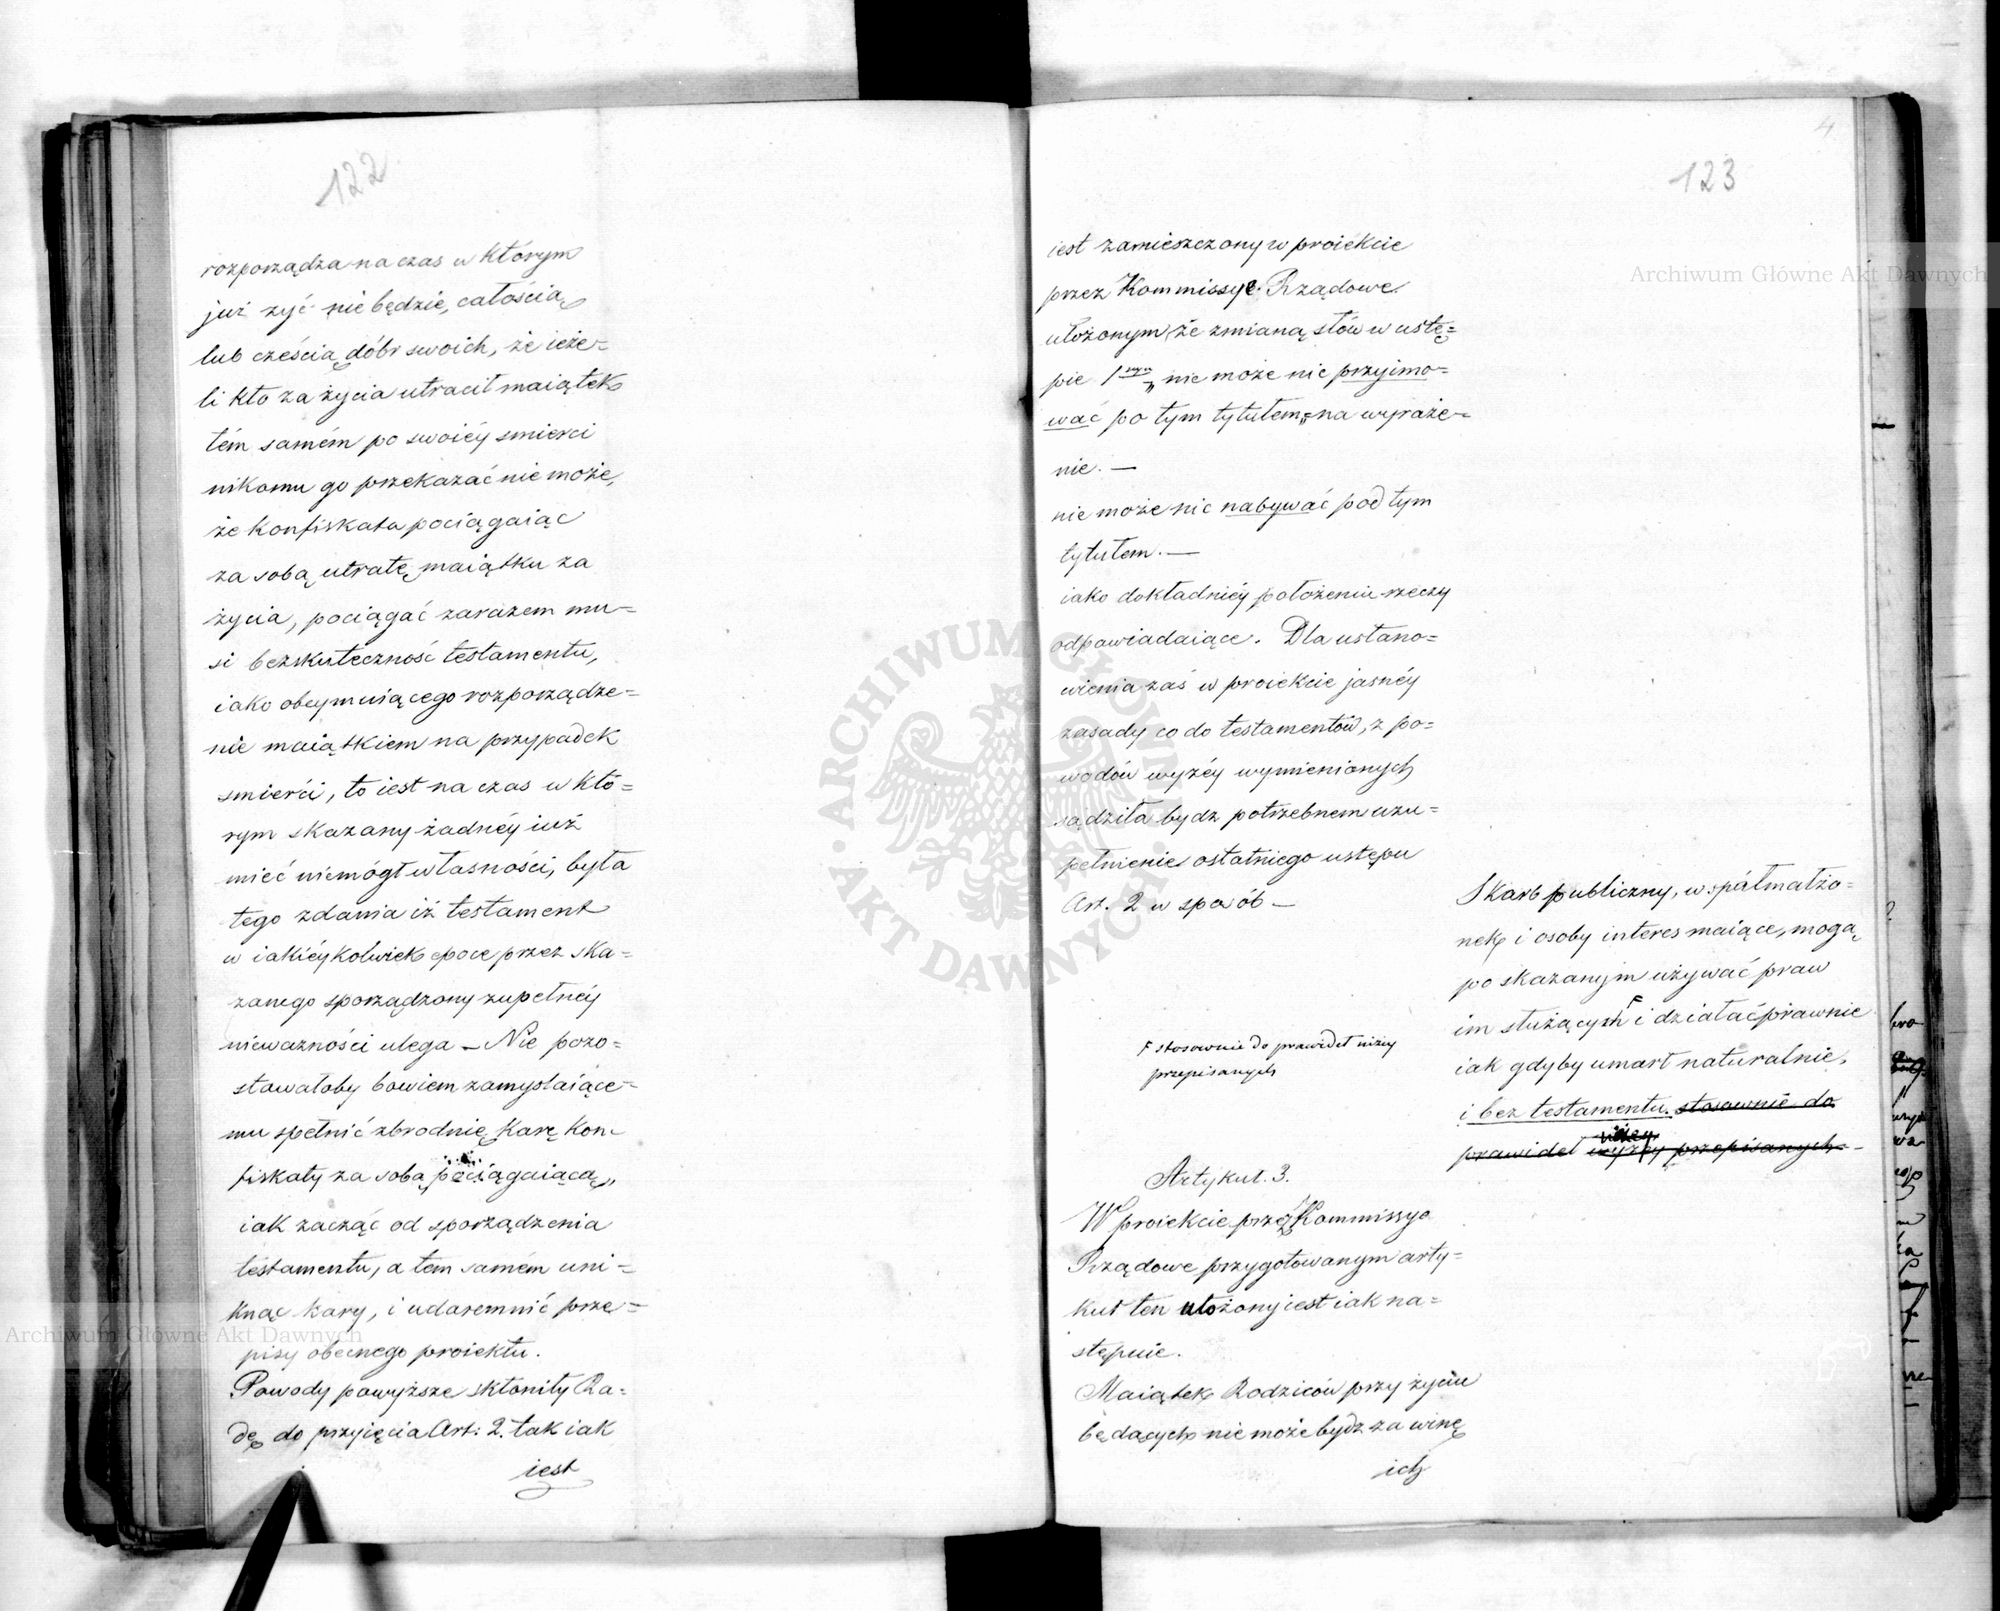 122
rozporządza na czas w którym
już żyć nie będzie, całością
lub cześcią dóbr swoich, że ieże=
li kto za życia utracił maiątek
tém samém po swoiéy smierci
nikomu go przekazać nie może,
że konfiskata pociągaiąc
za sobą utratę maiątku za
życia, pociągać zarazem mu=
si bezskuteczność testamentu,
iako obeymuiącego rozporządze=
nie maiątkiem na przypadek
smierći, to iest na czas w któ=
rym skazany żadnéy iuż
mieć niemógł własności, była
tego zdania iż testament
w iakiéykolwiek epoce przez ska=
zanego sporządzony zupełnéy
nieważności ulega — Nie pozo=
stawałoby bowiem zamyslaiące=
mu spełnić zbrodnię karę kon=
fiskaty za sobą pociągaiącą,
iak zacząć od sporządzenia
testamentu, a tem samém uni=
knąc kary, i udaremnić prze=
pisy obecnego proiektu.
Powody powyższe skłoniły Ra=
dę do przyięcia Art: 2. tak iak
iest
4
123
iest zamieszczony w proiekcie
przez Kommissye Rządowe
ułożonym, ze zmianą słów w ustę=
pie 1szym „nie może nic przyimo=
wać po tym tytułem„ na wyraże=
nie. —
nie może nic nabywać pod tym
tytułem. —
iako dokładniéy położeniu rzeczy
odpowiadaiące. Dla ustano=
wienia zaś w proiekcie jasnéy
zasady co do testamentów, z po=
wodów wyżéy wymienionych
sądziła bydz potrzebnem uzu=
pełnienie ostatniego ustępu
Art. 2 w sposób —
Skarb publiczny, wspołmałżo=
nek i osoby interes maiące, mogą
po skazanym używać praw
im służących F i działać prawnie
iak gdyby umarł naturalnie,
i bez testamentu. stosownie do
niżey
prawideł wyżey przepisanych —
F stosownie do prawideł niżey
przepisanych
Artykuł. 3.
W proiekcie przez Kommissye
Rządowe przygotowanym arty=
kuł ten ułożony iest iak na=
stępuie.
Maiątek Rodziców przy życiu
będących nie może bydz za winę
ich
Archiwum Główne Akt Dawnych
Archiwum Główne Akt Dawnych
ARCHIWUM GŁÓWNE
AKT DAWNYCH